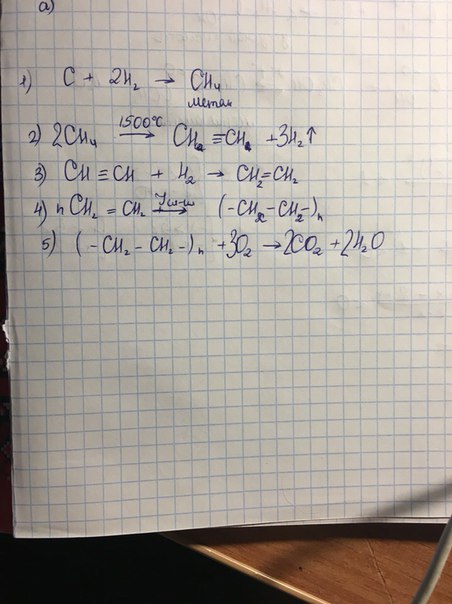 а)
1) C + 2H₂ → CH₄
метан
2) 2CH₄ 1500°C → CH ≡ CH + 3H₂↑
3) CH ≡ CH + H₂ → CH₂ = CH₂
4) n CH₂ = CH₂ → (-CH₂-CH₂-)n
5) (-CH₂-CH₂-)n + 3O₂ → 2CO₂ + 2H₂O